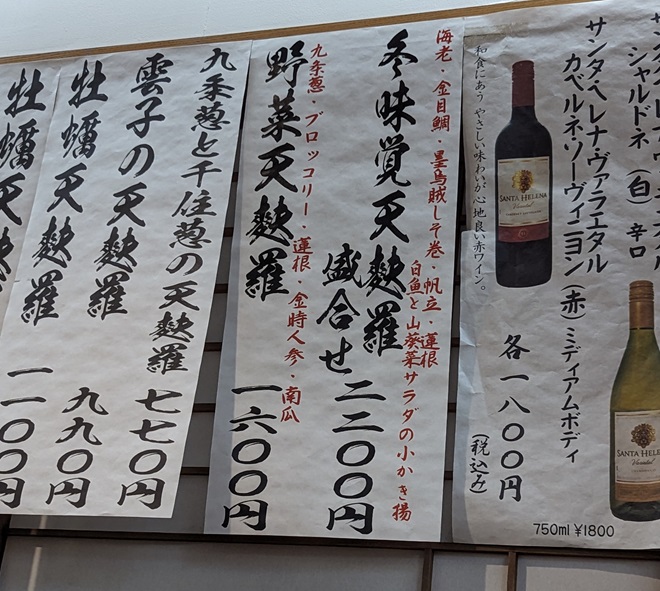 シャルドネ（白）辛口
サンタヘレナヴァラエタル
カベルネソーヴィニヨン（赤）ミディアムボディ
各一八〇〇円
（税込み）
和食にあう やさしい味わいが心地良い赤ワイン。
SANTA HELENA
Varietal
SANTA HELE
Varietal
750ml ¥1800
海老・金目鯛・墨烏賊しそ巻・帆立・蓮根
白魚と山葵菜サラダの小かき揚
冬味覚天麩羅
盛合せ 二二〇〇円
九条葱・ブロッコリー・蓮根・金時人参・南瓜
野菜天麩羅 一六〇〇円
九条葱と千住葱の天麩羅 七七〇円
雲子の天麩羅 九九〇円
牡蠣天麩羅 一一〇〇円
牡蠣天麩